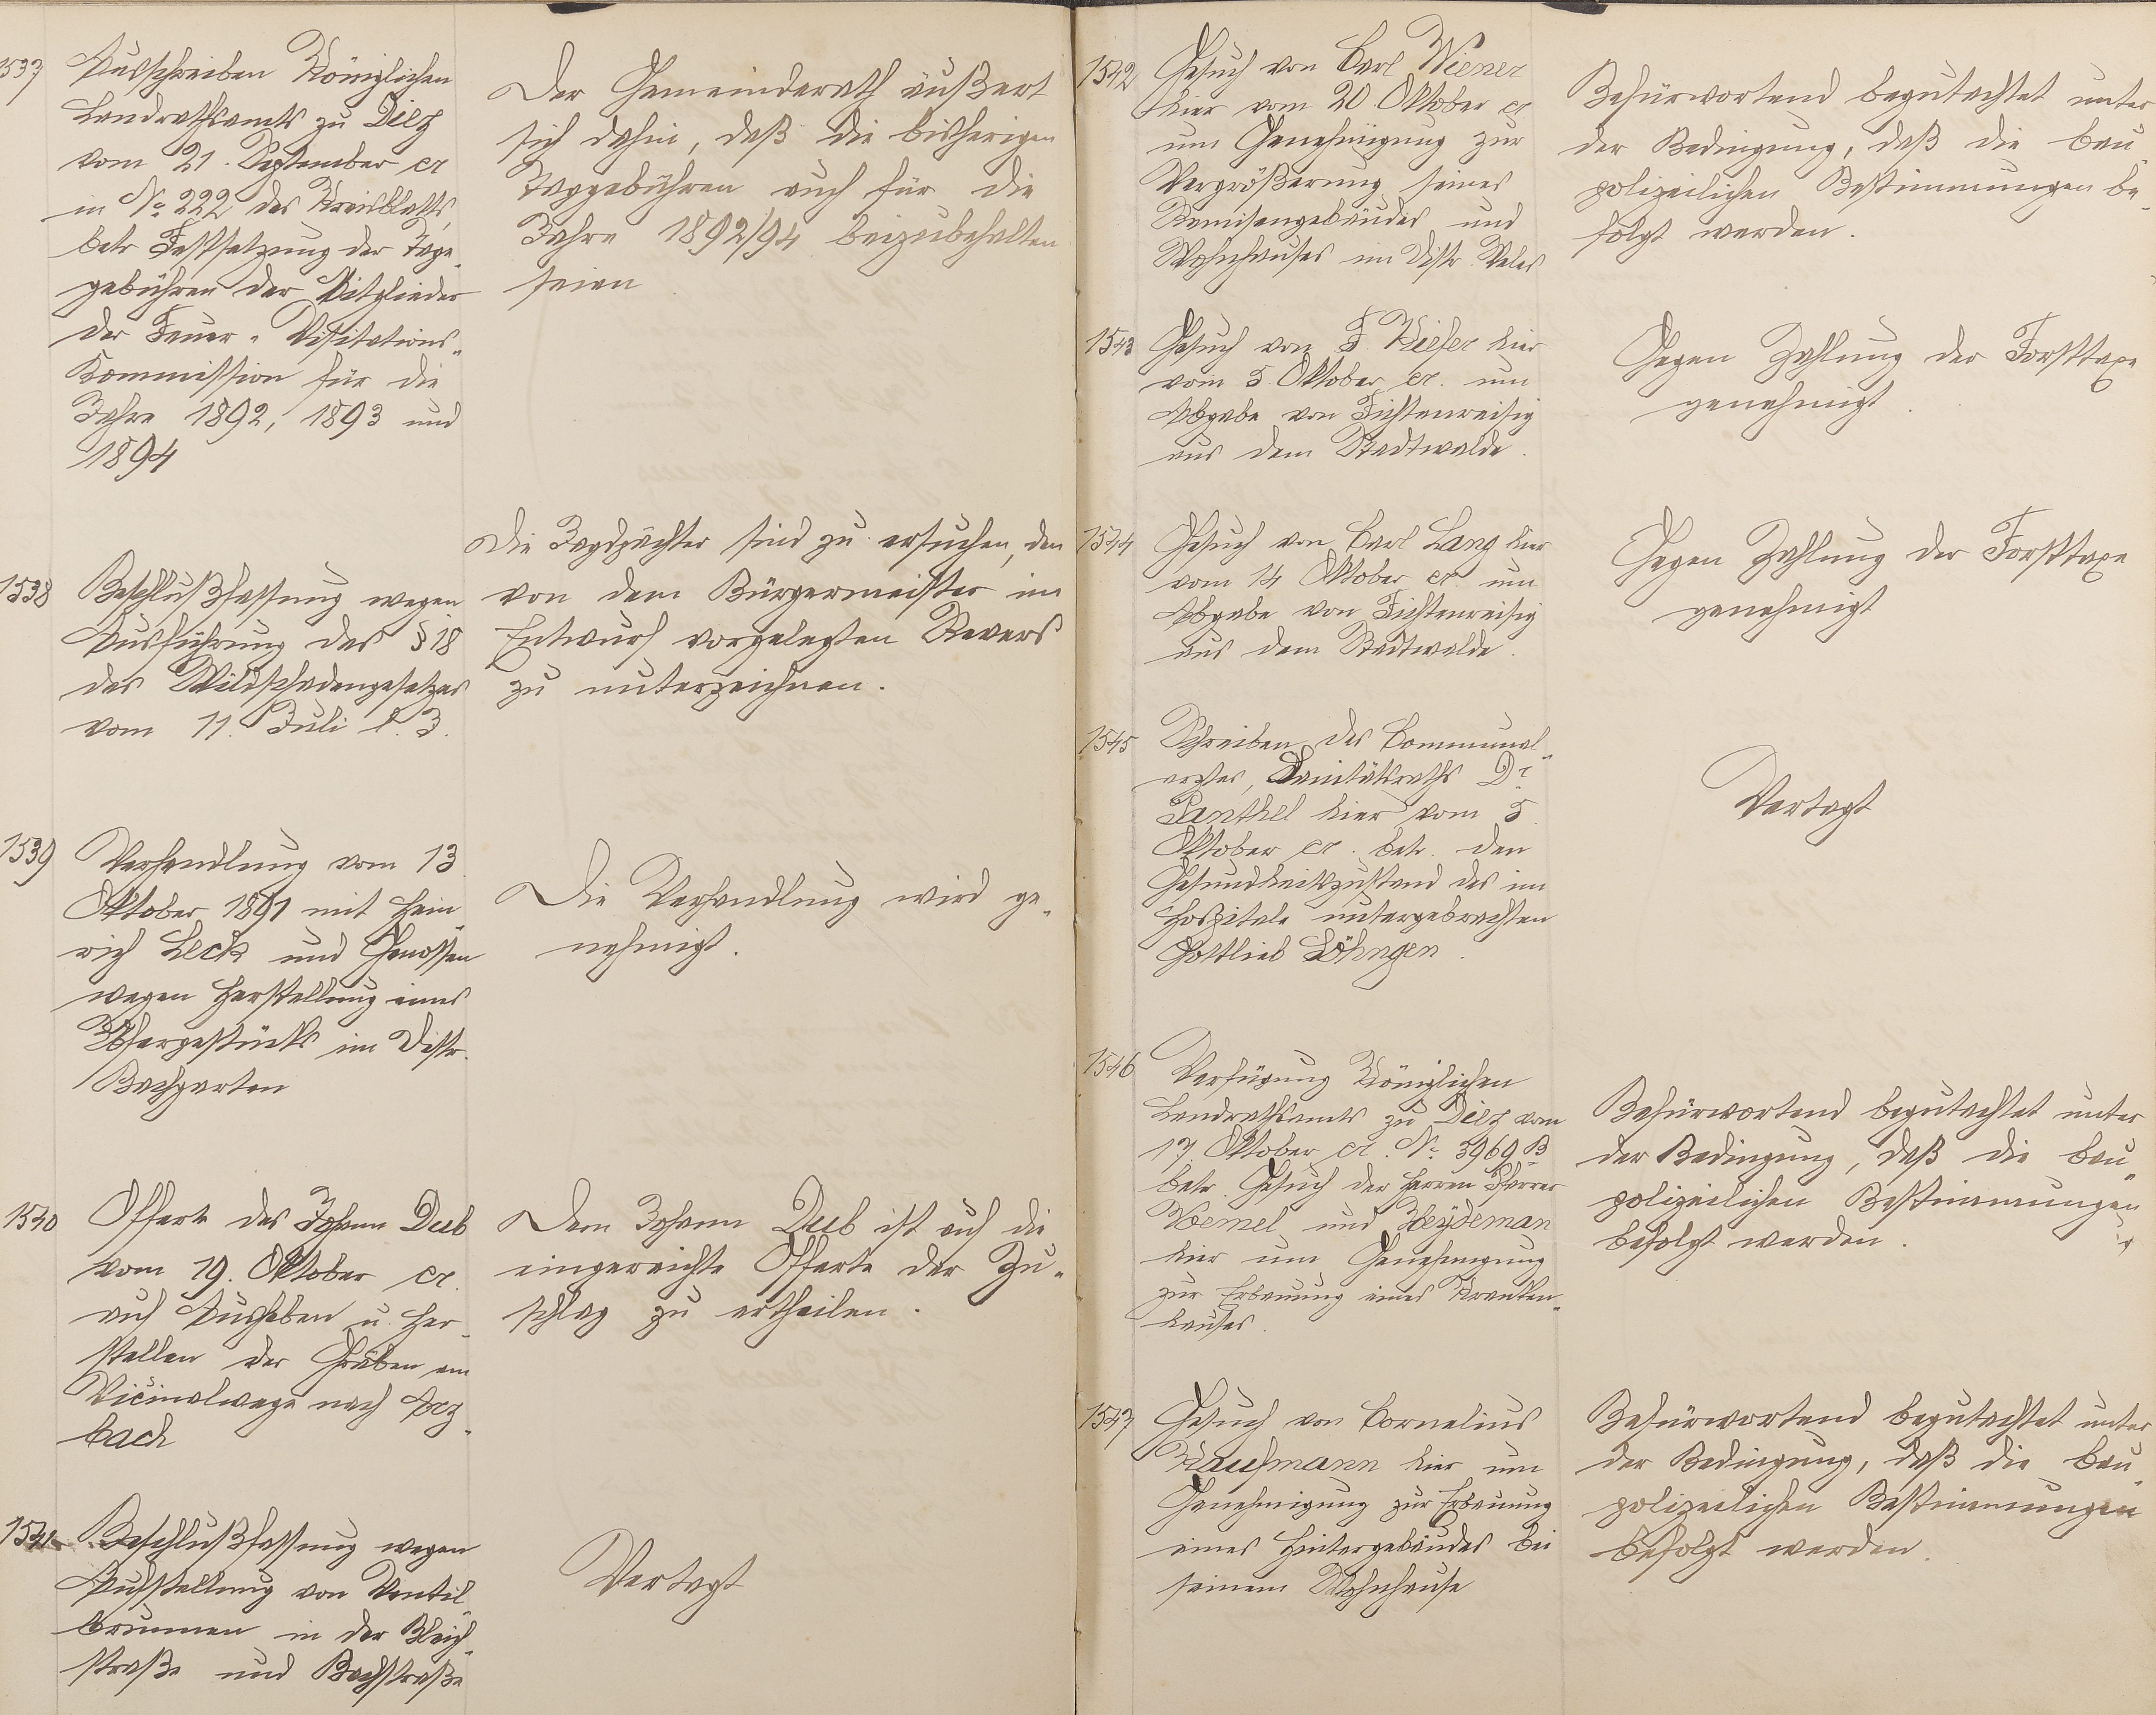 1537
Ausschreiben Königlichen
Landrathsamts zu Diez
vom 21. September cr
in No 222 des Kreisblatts,
betr Festsetzung der Tage-
gebühren der Mitglieder
der Feuer-Visitations-
Kommission für die
Jahre 1892, 1893 und
1894
Der Gemeinderath äußert
sich dahin, daß die bisherigen
Taggebühren auch für die
Jahre 1892/94 beizubehalten
seien
1538
Beschlußfassung wegen
Ausführung des § 18
des Wildschadengesetzes
vom 11. Juli l. J.
Die Jagdpächter sind zu ersuchen, den
von dem Bürgermeister im
Entwurf vorgelegten Revers
zu unterzeichnen.
1539
Verhandlung vom 13.
Oktober 1891 mit Hein-
rich Leck und Genossen
wegen Herstellung eines
Ufergestücks im Distr.
Bachgarten
Die Verhandlung wird ge-
nehmigt.
1540
Offerte des Johann Dub
vom 19. Oktober cr.
auf Ausheben u. Her-
stellen der Gräben am
Vicinalwege nach Arz-
bach
Dem Johann Dub ist auf die
eingereichte Offerte der Zu-
schlag zu ertheilen.
1541
Beschlußfassung wegen
Aufstellung von Ventil-
brunnen in der Bleich-
straße und Bachstraße
Vertagt
1542
Gesuch von Carl Wiener
hier vom 20. Oktober cr
um Genehmigung zur
Vergrößerung seines
Remisengebäudes und
Wohnhauses im Distr.
Befürwortend begutachtet unter
der Bedingung, daß die bau-
polizeilichen Bestimmungen be-
folgt werden.
1543
Gesuch von F. Kiefer hier
vom 5. Oktober cr. um
Abgabe von Fichtenreisig
aus dem Stadtwalde.
Gegen Zahlung der Forsttaxe
genehmigt.
1544
Gesuch von Carl Lang hier
vom 14 Oktober cr um
Abgabe von Fichtenreisig
aus dem Stadtwalde.
Gegen Zahlung der Forsttaxe
genehmigt
1545
Schreiben des Communal-
arztes, Sanitätsraths Dr.
Panthel hier vom 5.
Oktober cr. betr. den
Gesundheitszustand des im
Hospitale untergebrachten
Gottlieb Löhngen.
Vertagt
1546
Verfügung Königlichen
Landrathsamts zu Diez vom
17. Oktober cr. No 3969 B
betr. Gesuch der Herren Pfarrer
Voemel und Heydeman
hier um Genehmigung
zur Erbauung eines Kranken-
hauses.
Befürwortend begutachtet unter
der Bedingung, daß die bau-
polizeilichen Bestimmungen
befolgt werden.
1547
Gesuch von Cornelius
Kaufmann hier um
Genehmigung zur Erbauung
eines Hintergebäudes bei
seinem Wohnhause
Befürwortend begutachtet unter
der Bedingung, daß die bau-
polizeilichen Bestimmungen
befolgt werden.